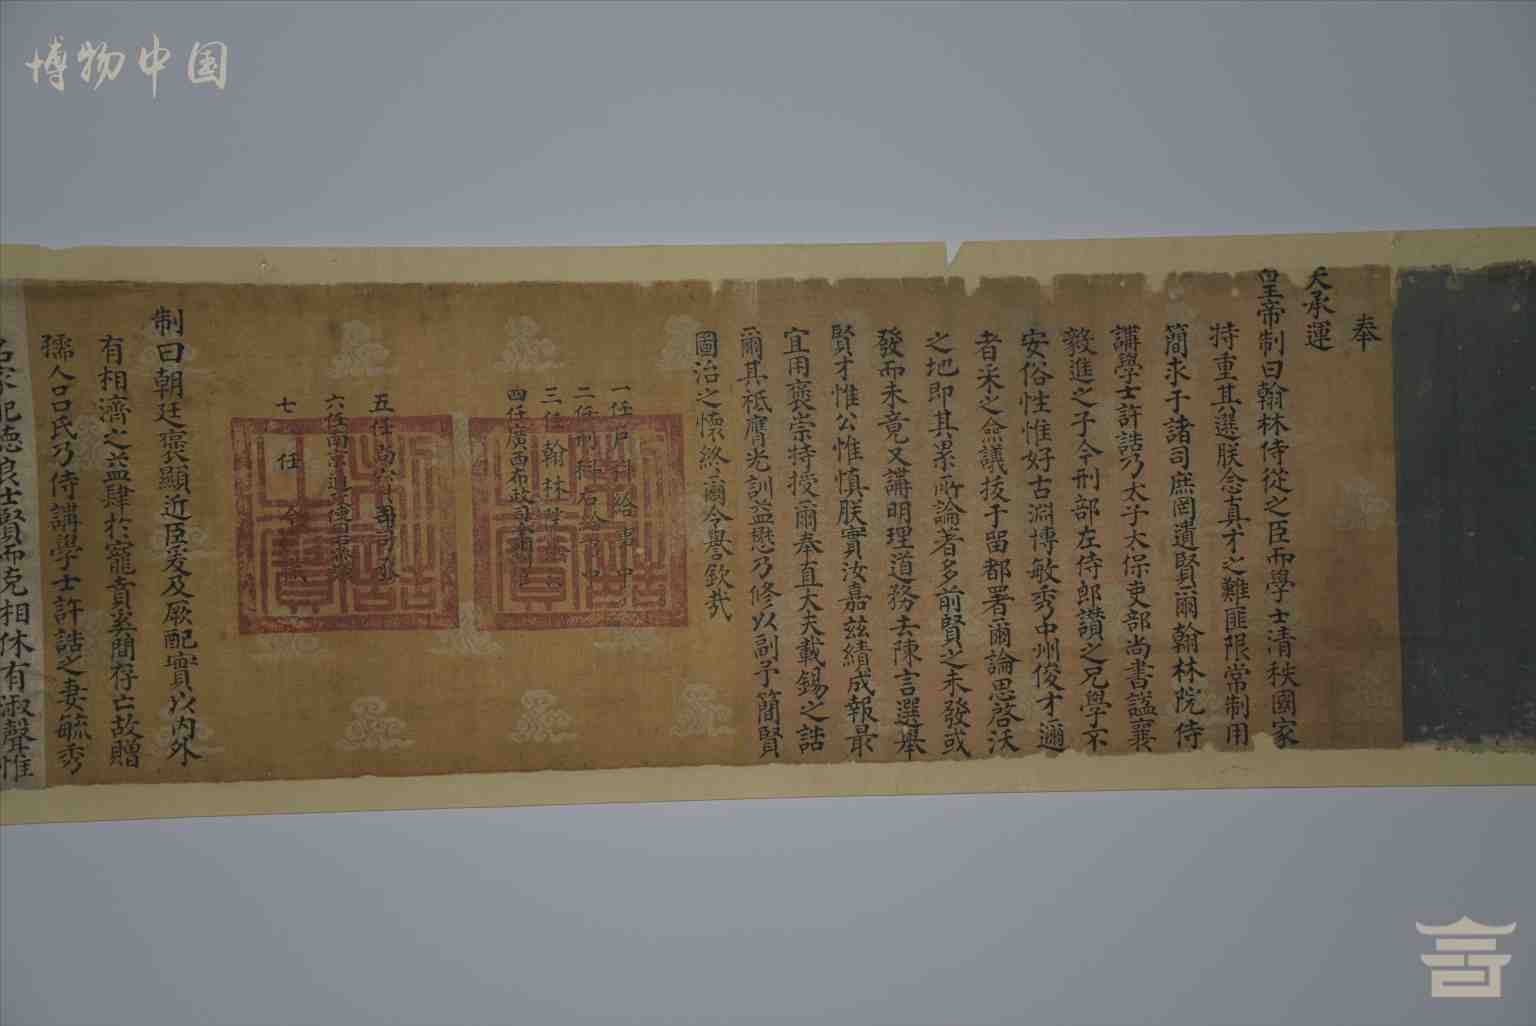 博物中国
奉
天承運
皇帝制曰翰林侍從之臣而學士清秩國家
持重其選朕念真才之難匪限常制用
簡求于諸司庶罔遺賢爾翰林院侍
講學士許誥乃太子太保吏部尚書謚襄
毅進之子今刑部左侍郎讚之兄學不
安俗性惟好古淵博敏秀中州俊才邇
者采之僉議拔于留都署爾論思啓沃
之地即其累所論著多前賢之未發或
發而未竟又講明理道務去陳言選舉
賢才惟公惟慎朕實汝嘉茲績成報最
宜用褒崇特授爾奉直大夫載錫之誥
爾其祗膺光訓益懋乃修以副予簡賢
圖治之懷終爾令譽欽哉
一任戶科給事中
二任刑科右給事中
三任翰林
四任廣西布政司
五任尚
六任南京通
七任今職
制曰朝廷褒顯近臣爰及厥配實以內外
有相濟之益肆於寵賁奚間存亡故贈
孺人口氏乃侍講學士許誥之妻毓秀
名家配德良士賢而克相休有淑聲惟